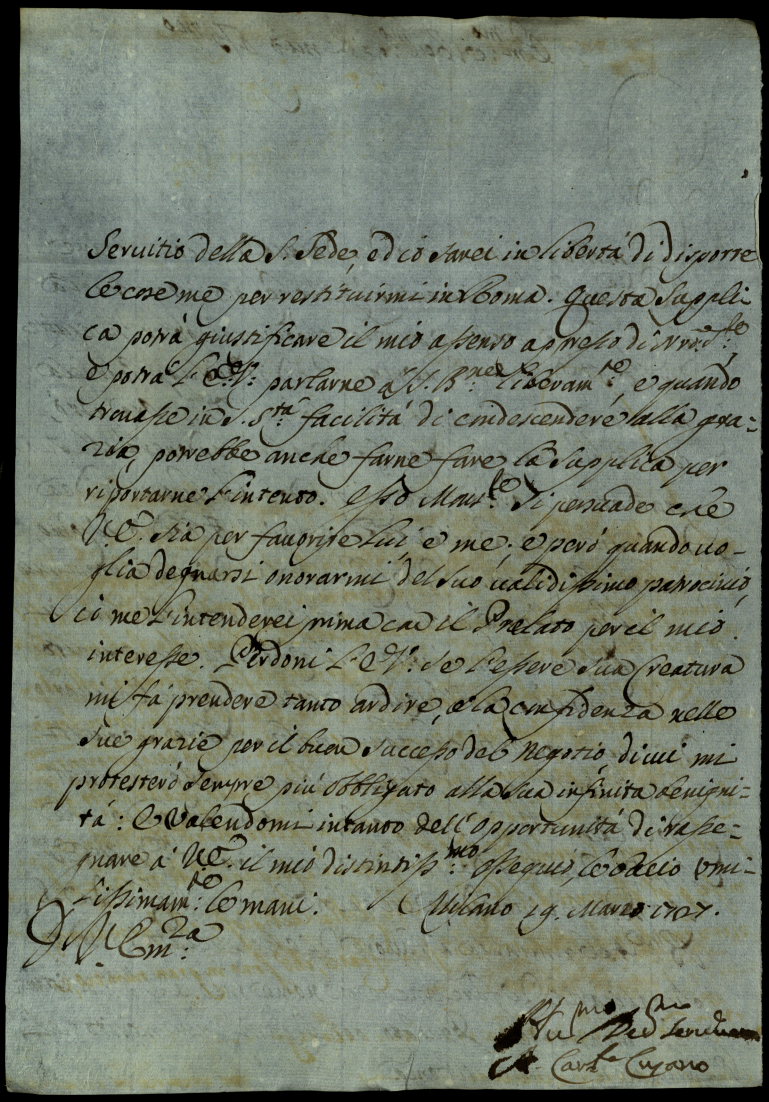 Seruitio della S. Sede, ed io sarei in libertá di disporre
le cose mie per restituirmi in Roma. Questa suppli
ca potrá giustificare il mio assenso appresso di
e potrá L'E.V. parlarne á S. B.ne liberam.te, e quando
trouasse in S. S.tá facilitá di condescendere alla gra-
zia, potrebbe anche farne fare la supplica per
riportarne l'intento. Esso Mons.re si persuade che
V.E. sia per fauorire lui, e me; e peró quando uo-
glia degnarsi onorarmi del suo ualidissimo patrocinio,
io me l'intenderei prima con il Prelato per il mio
interesse. Perdoni L'E.V. se l'essere sua Creatura
mi fá prendere tanto ardire, e la confidenza nelle
sue grazie per il buon successo del negotio, di cui mi
protesteró sempre piú obbligato alla sua infinita benigni-
tá: E ualendomi intanto dell'opportunitá di rasse-
gnare á V.E. il mio distintiss.mo ossequio, le bacio umi-
lissimam.te le mani. Milano 19. Marzo 1727.
Di V. Em.za
A. Card.le